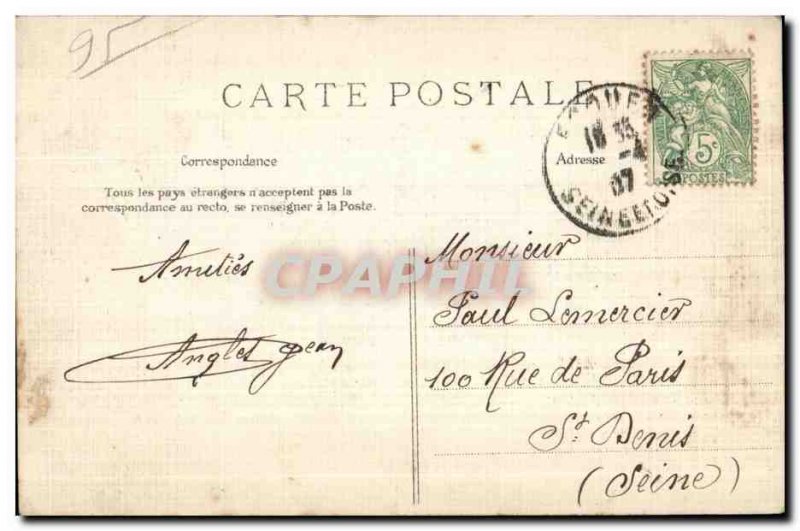 95
CARTE POSTALE
5c
POSTES
18 35
-4
07
SEINE ET OISE
Correspondance
Adresse
Tous les pays étrangers n'acceptent pas la
correspondance au recto, se renseigner à la Poste.
Amitiés
Angles Jean
Monsieur
Paul Lemercier
100 Rue de Paris
St Denis
(Seine)
CPAPHIL